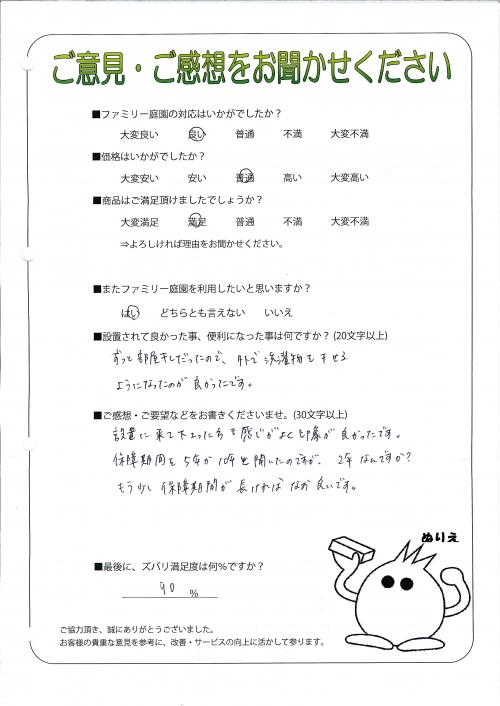 ご意見・ご感想をお聞かせください
■ファミリー庭園の対応はいかがでしたか？
大変良い 良い 普通 不満 大変不満
■価格はいかがでしたか？
大変安い 安い 普通 高い 大変高い
■商品はご満足頂けましたでしょうか？
大変満足 満足 普通 不満 大変不満
⇒よろしければ理由をお聞かせください。
■またファミリー庭園を利用したいと思いますか？
はい どちらとも言えない いいえ
■設置されて良かった事、便利になった事は何ですか？(20文字以上)
ずっと部屋干しだったので、外で洗濯物を干せる
ようになったのが良かったです。
■ご感想・ご要望などをお書きくださいませ。(30文字以上)
設置に来て下さった方も感じがよく印象が良かったです。
保障期間を5年か10年と聞いたのですが、2年なんですか？
もう少し保障期間が長ければなお良いです。
ぬりえ
■最後に、ズバリ満足度は何%ですか？
90 %
ご協力頂き、誠にありがとうございました。
お客様の貴重な意見を参考に、改善・サービスの向上に活かして参ります。